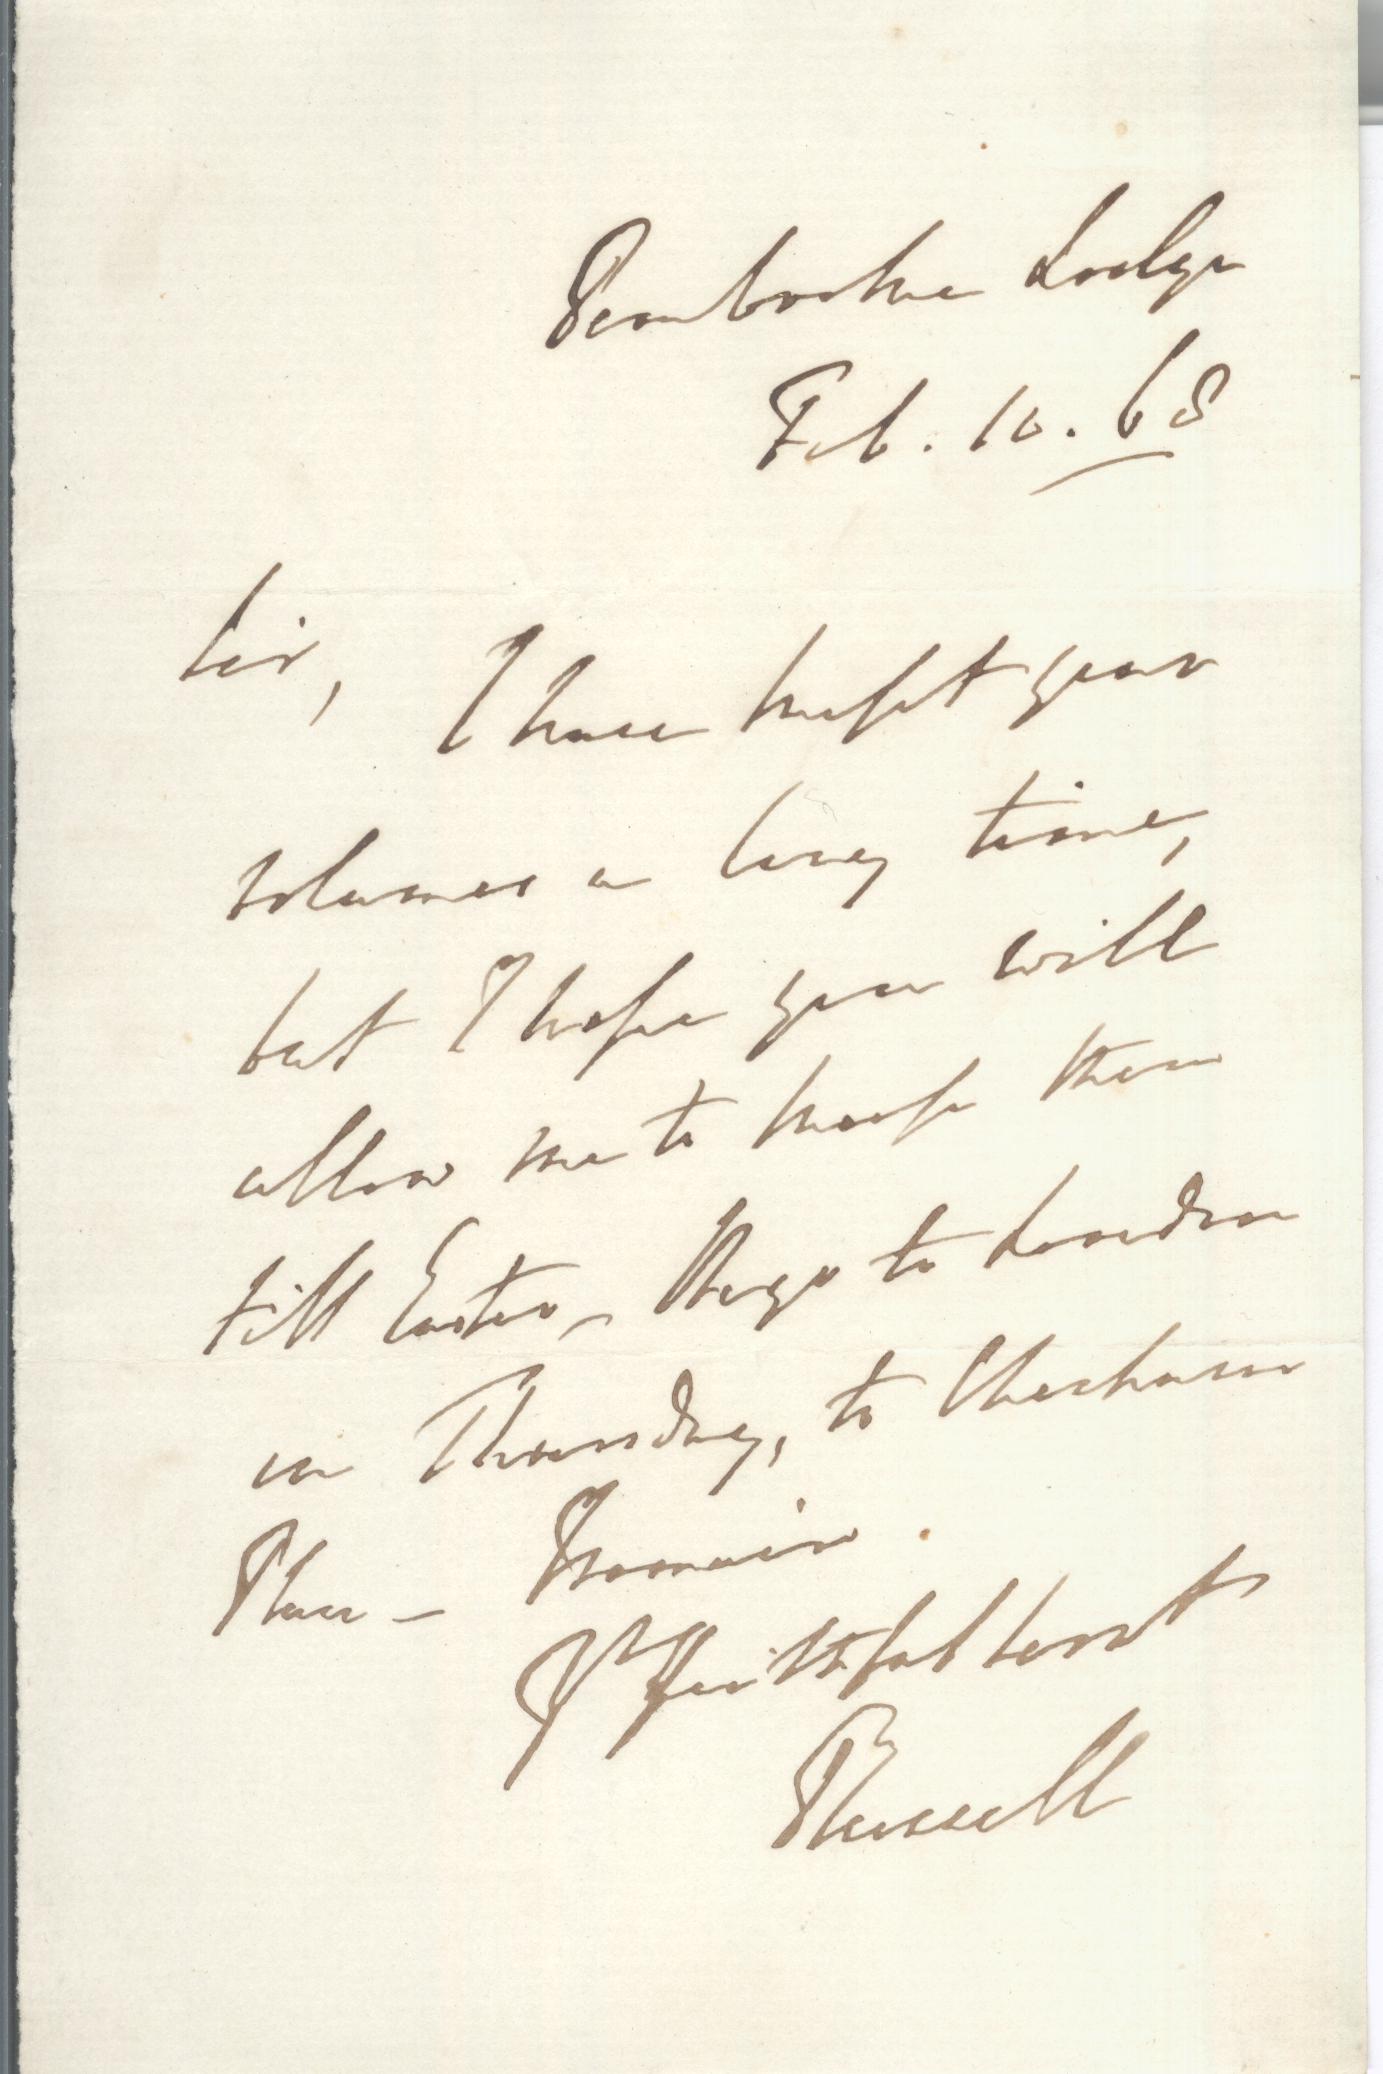 Pembroke Lodge
Feb. 10. 68
Sir, I have kept your
volumes a long time,
but I hope you will
allow me to keep them
till Easter – We go to London
on Thursday, to Chesham
Place – I remain.
Yr faithful Servt
Russell